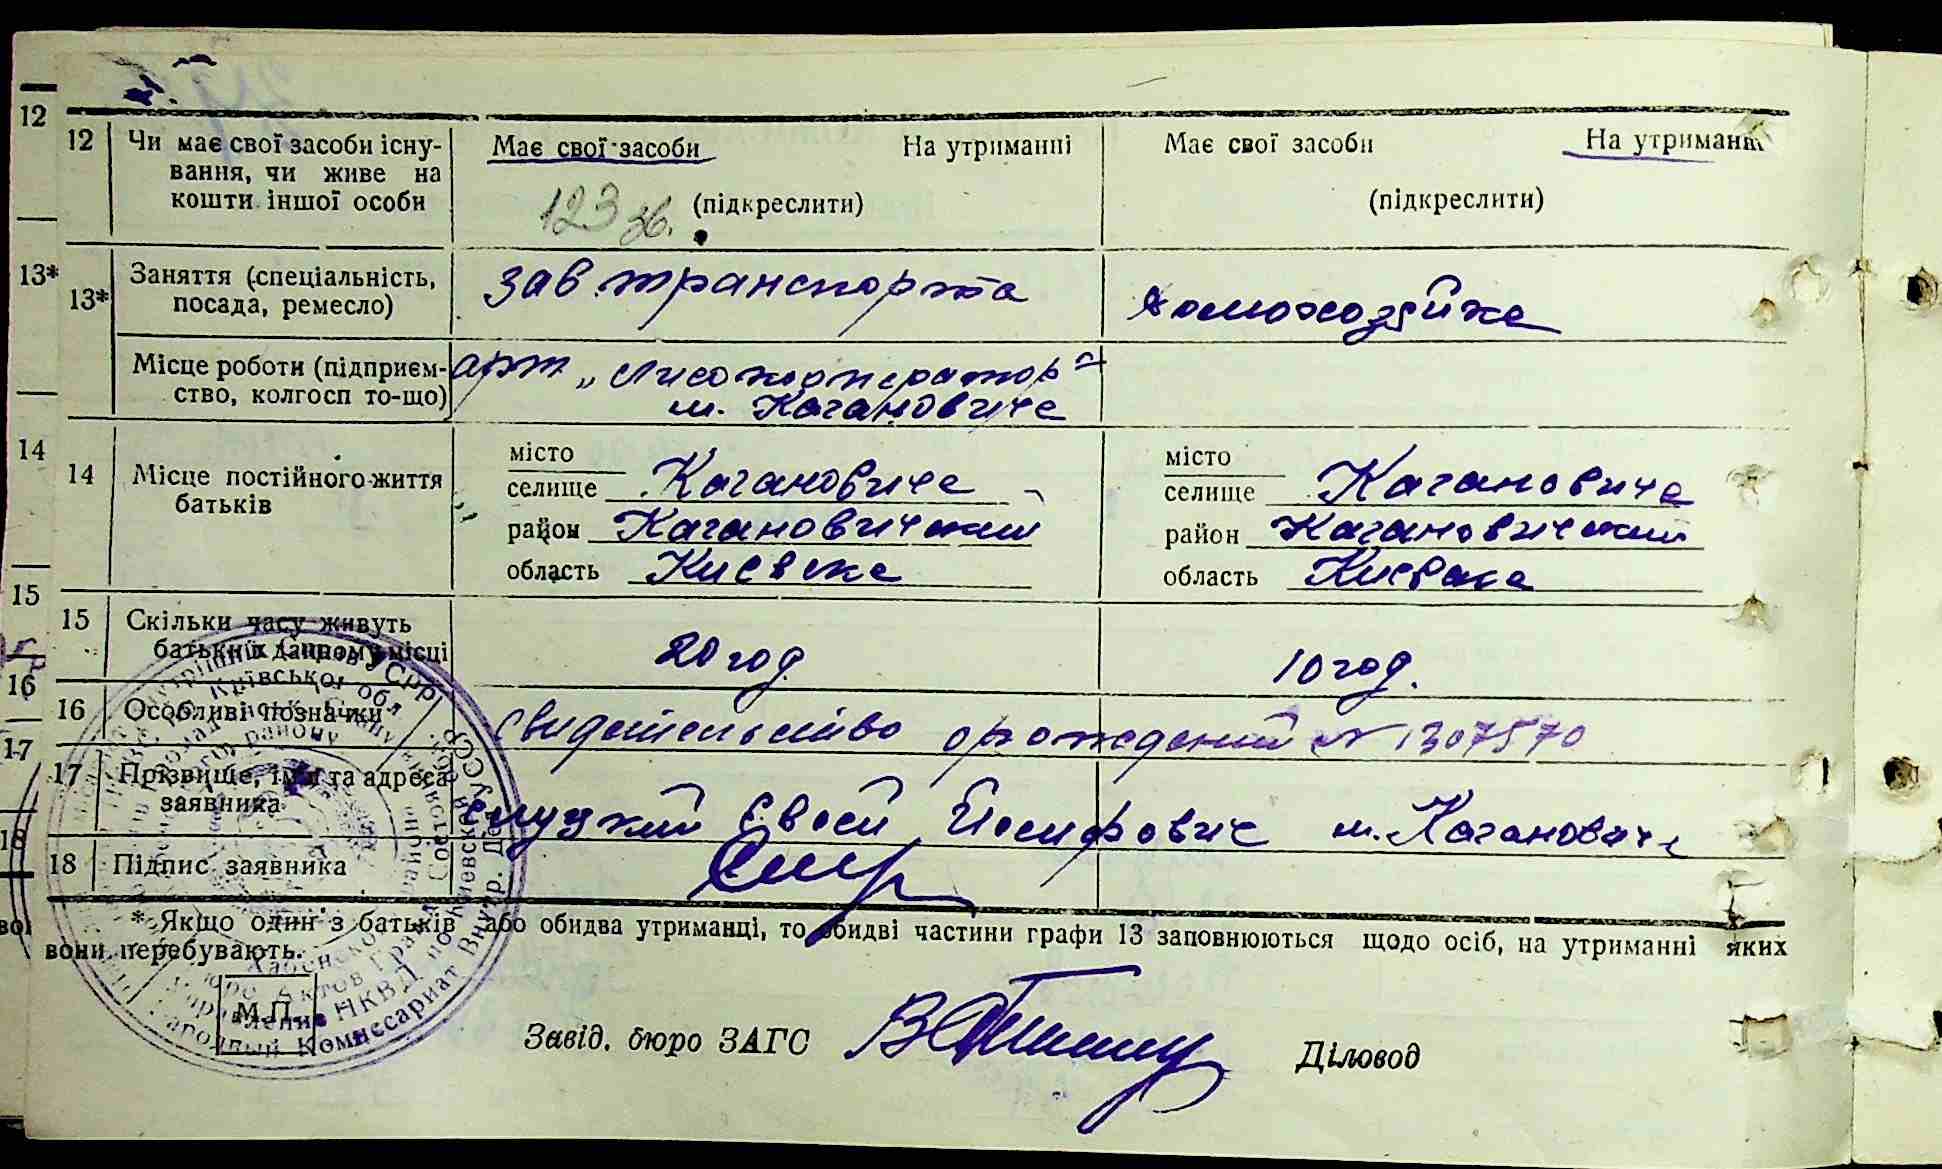 12
12 Чи має свої засоби існу-
вання, чи живе на
кошти іншої особи
Має свої засоби На утриманні
123 зв. (підкреслити)
Має свої засоби На утриманні
(підкреслити)
13*
13* Заняття (спеціальність,
посада, ремесло)
зав транспорта
домохозяйка
Місце роботи (підприєм-
ство, колгосп то-що)
арт
м. Кагановиче
14
14 Місце постійного життя
батьків
місто
селище Кагановиче
район Кагановичский
область Киевска
місто
селище Кагановиче
район Кагановичский
область Киевска
15
15 Скільки часу живуть
батьки в даному місці
20 год.
10 год.
16
16 Особливі позначки
свидетельство о рождений № 1307570
17
17 Прізвище, ім'я та адреса
заявника
слуцкий Евсей Йосифович м. Кагановиче
18
18 Підпис заявника
* Якщо один з батьків або обидва утриманці, то обидві частини графи 13 заповнюються щодо осіб, на утриманні яких
вони перебувають.
М.П.
Завід. бюро ЗАГС
Діловод